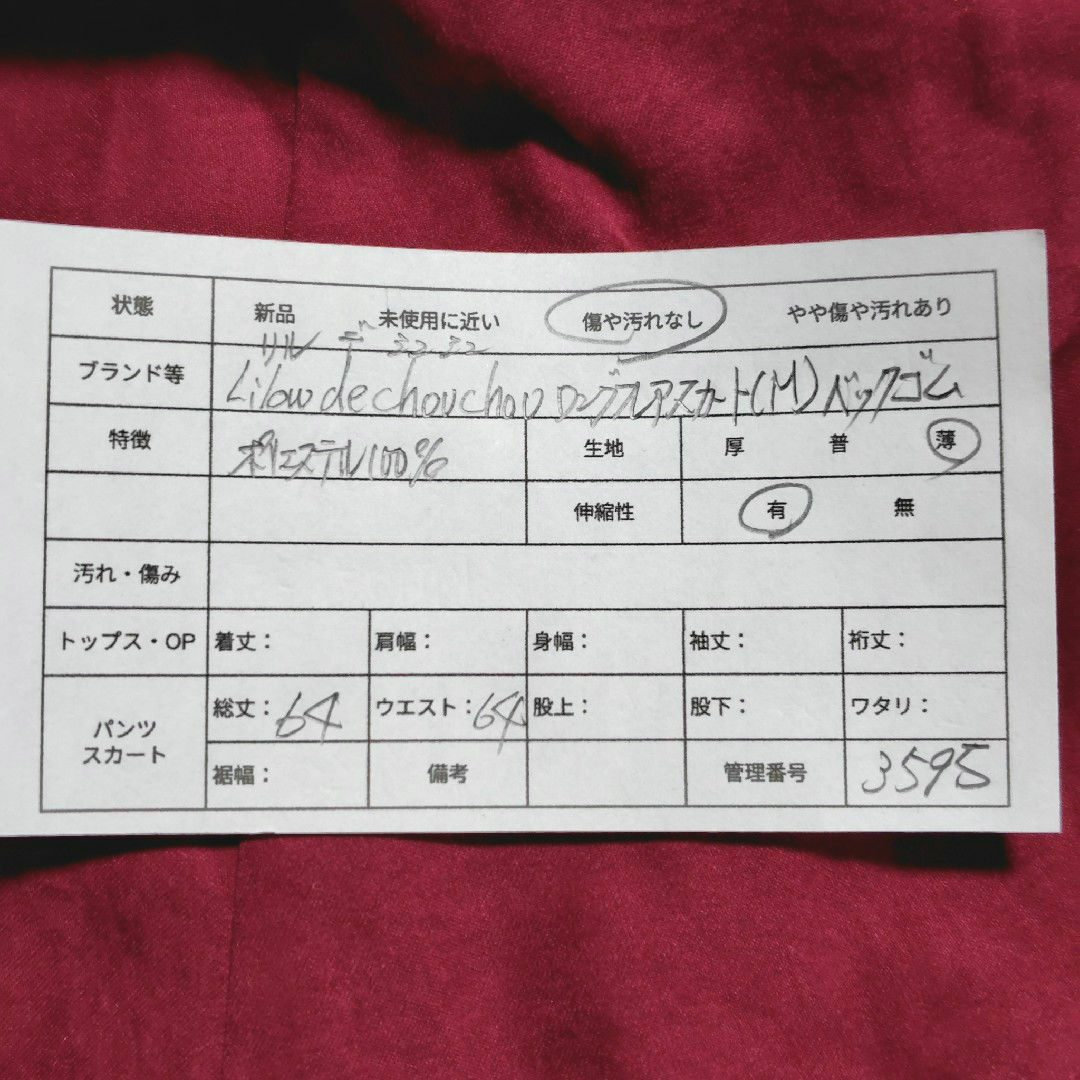 状態 新品 未使用に近い 傷や汚れなし やや傷や汚れあり
リル デ シュシュ
ブランド等 Lilou de chouchou ロングフレアスカート(M) バックゴム
特徴 ポリエステル100% 生地 厚 普 薄
伸縮性 有 無
汚れ・傷み
トップス・OP 着丈: 肩幅: 身幅: 袖丈: 裄丈:
パンツ スカート 総丈:64 ウエスト:64 股上: 股下: ワタリ:
裾幅: 備考 管理番号 3595